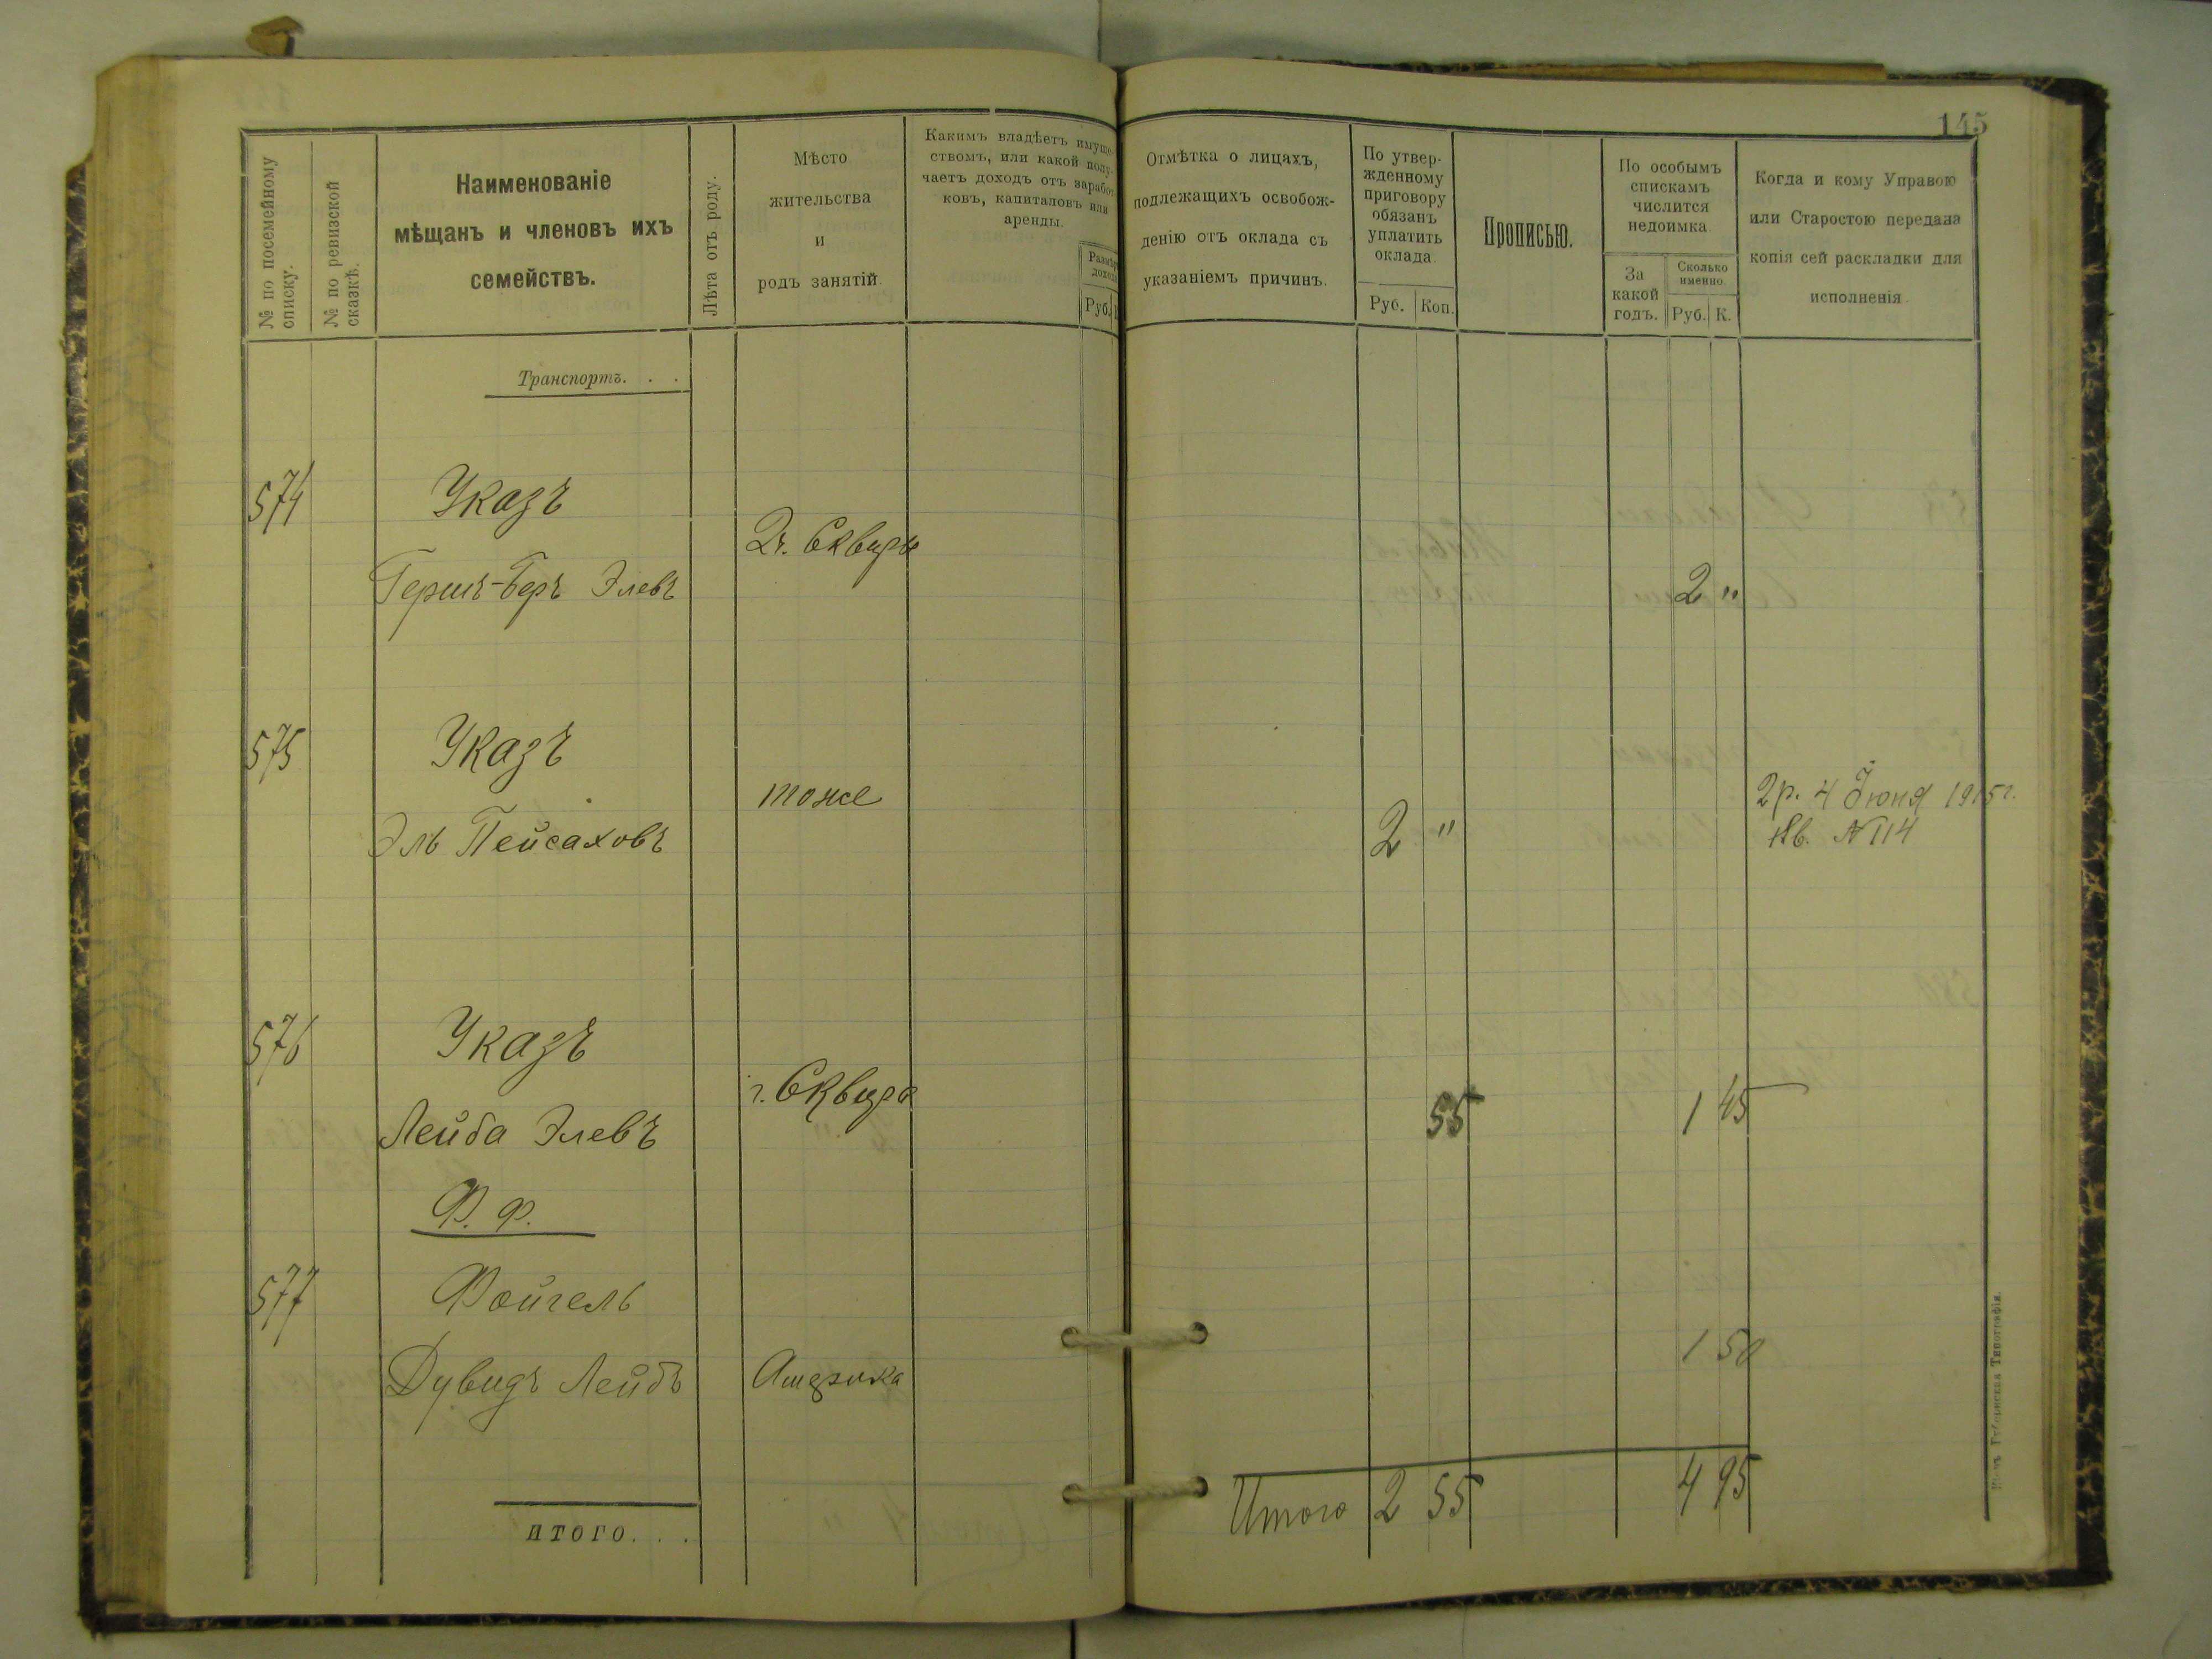 145
№ по посемейному
списку.
№ по ревизской
сказкѣ.
Наименованіе
мѣщанъ и членовъ ихъ
семействъ.
Лѣта отъ роду.
Мѣсто
жительства
и
родъ занятій.
Какимъ владѣетъ имуще-
ствомъ, или какой полу-
чаетъ доходъ отъ заработ-
ковъ, капиталовъ или
аренды.
Размѣръ
дохода
Руб.
Отмѣтка о лицахъ,
подлежащихъ освобож-
денію отъ оклада съ
указаніемъ причинъ.
По утвер-
жденному
приговору
обязанъ
уплатить
оклада.
Руб. Коп.
Прописью.
По особымъ
спискамъ
числится
недоимка.
За
какой
годъ.
Сколько
именно.
Руб. К.
Когда и кому Управою
или Старостою передана
копія сей раскладки для
исполненія.
Транспортъ. . .
574 Указъ
Гершъ-Беръ Элевъ
г. Сквира
2 "
575 Указъ
Эль Пейсаховъ
тоже
2 "
2 р. 4 Іюня 1915 г.
Кв. № 114
576 Указъ
Лейба Элевъ
г. Сквира
55
1 45
Ф. Ф.
577 Фойгель
Дувидъ Лейбъ
Америка
1 50
ИТОГО. . .
Итого 2 55
4 95
Губернская Типографія.